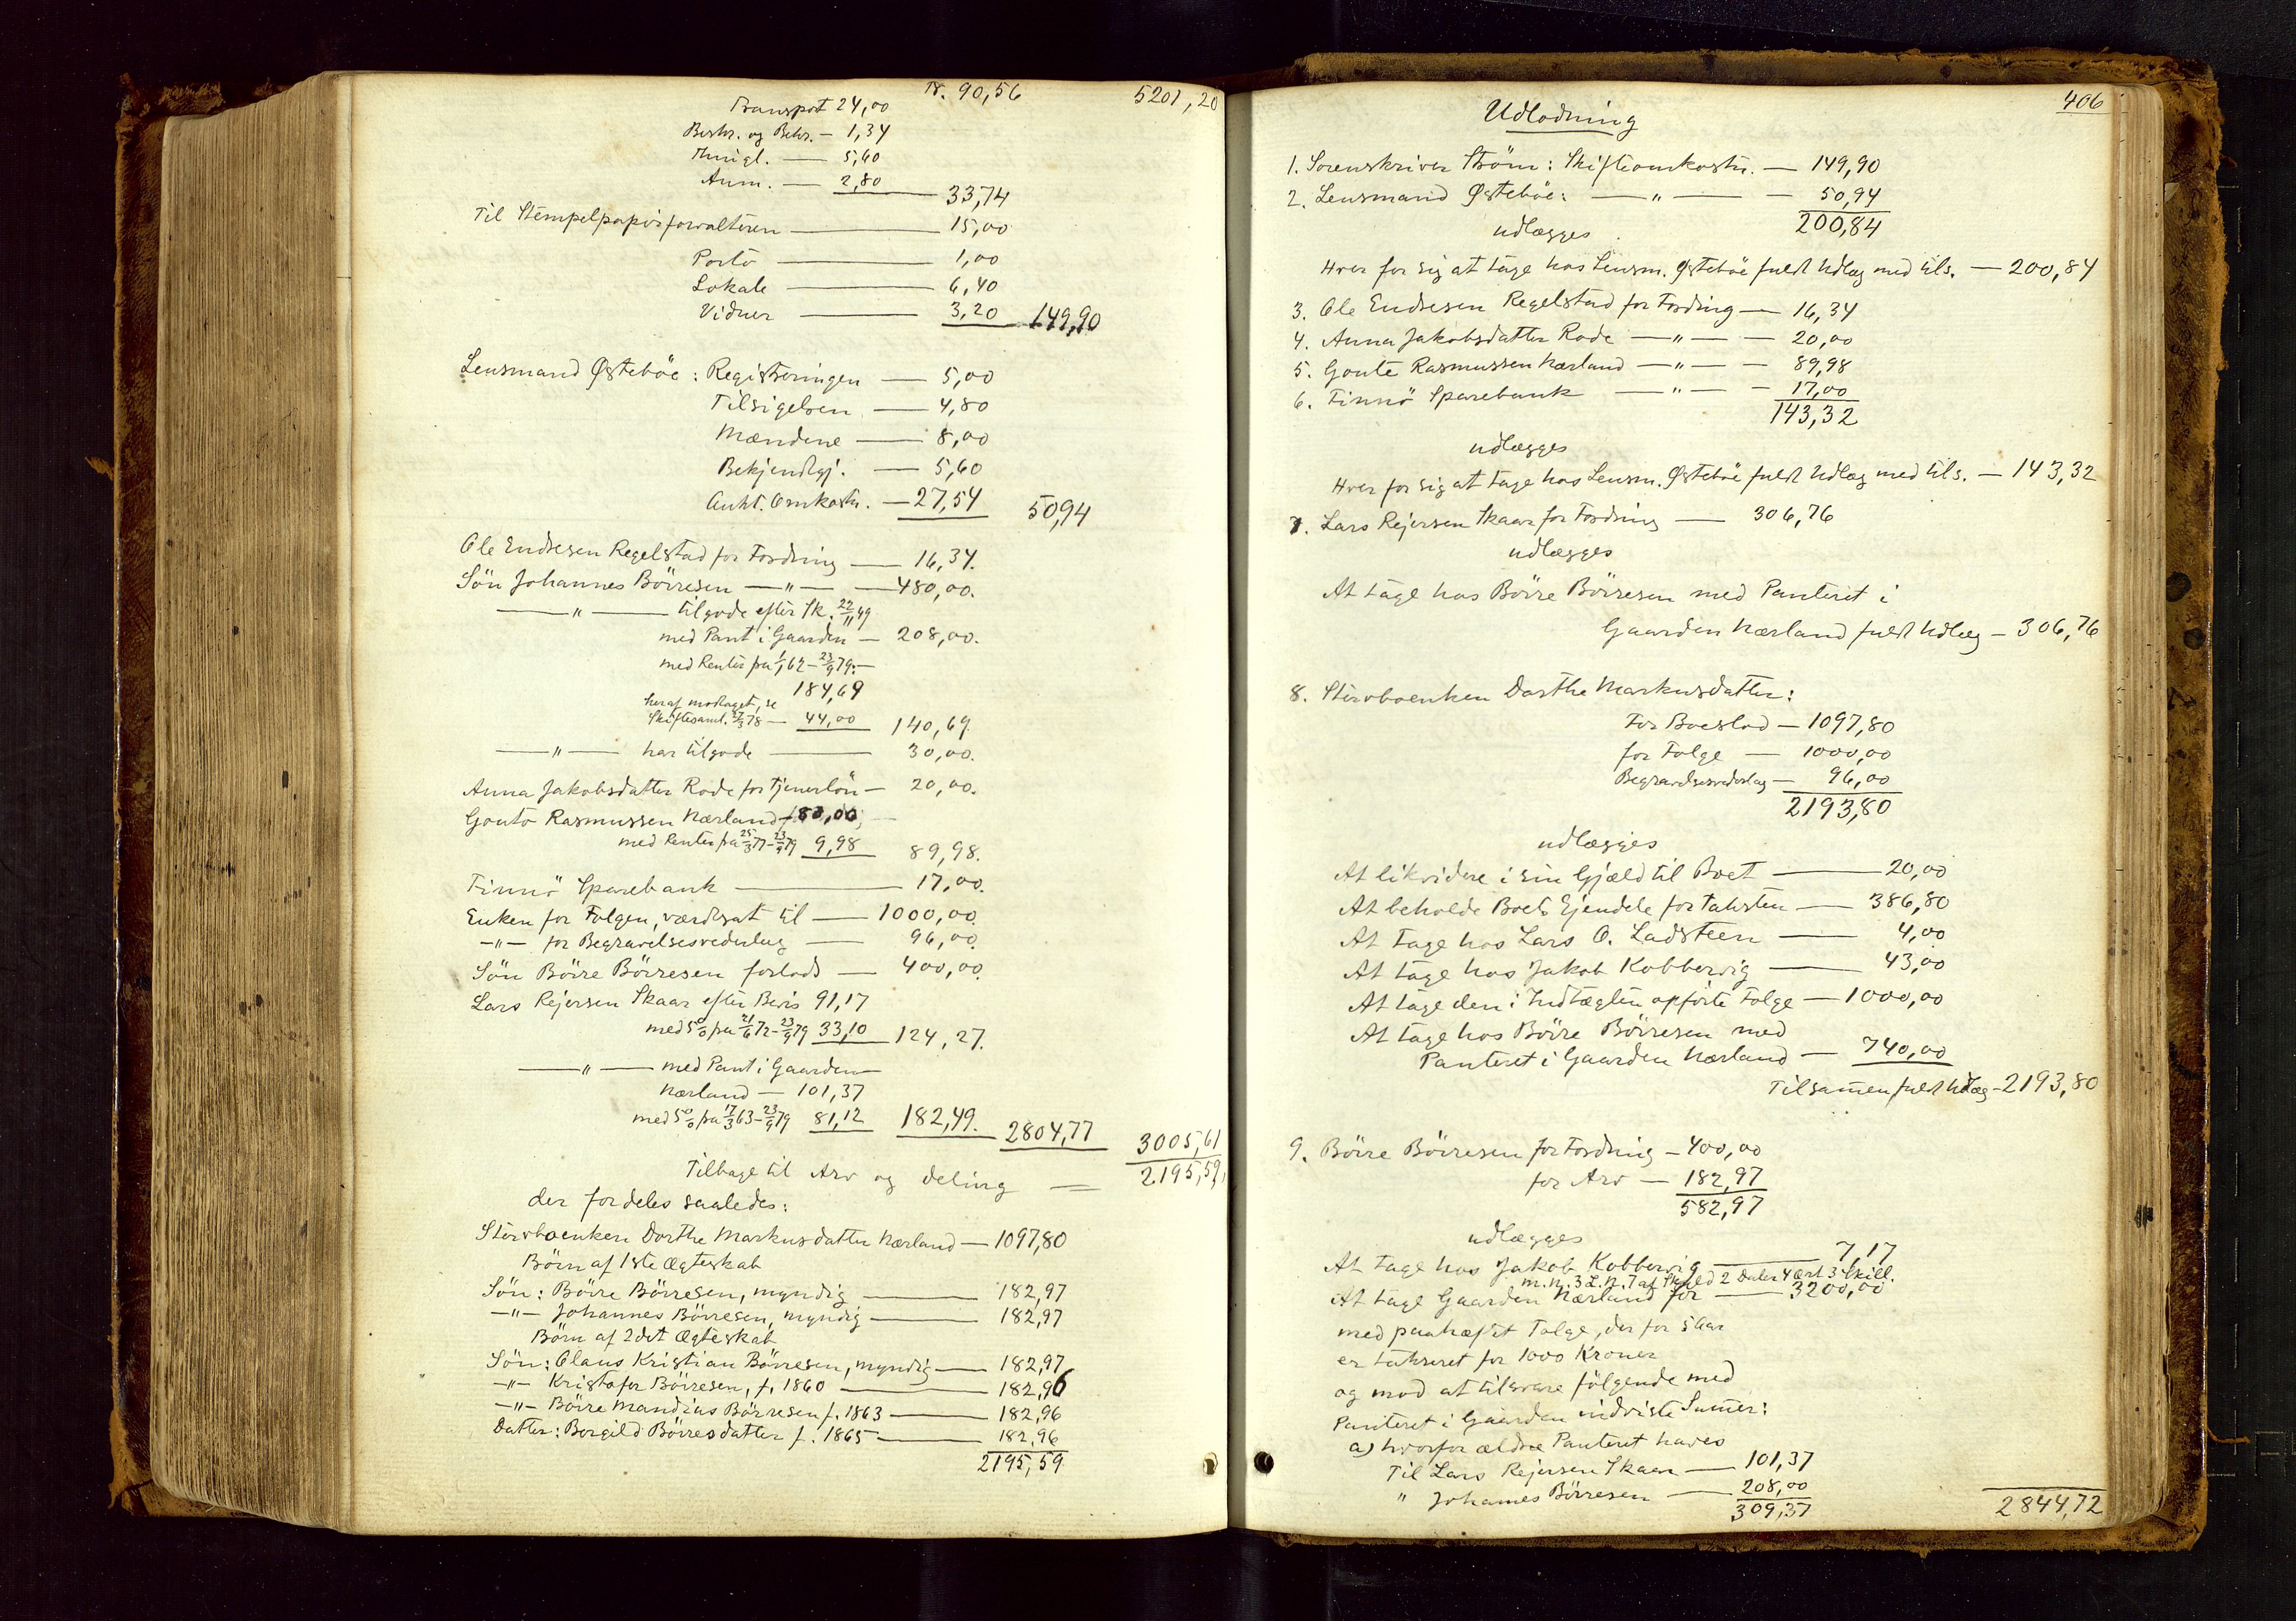 Transport 24,00 Tr. 90,56 5201,20
Beskr. og Behr. — 1,34
Thingl. — 5,60
Anm. — 2,80 33,74
Til Stempelpapirforvalteren — 15,00
Porto — 1,00
Lokale — 6,40
Vidner — 3,20 149,90
Lensmand Østeböe: Registreringen — 5,00
Tilsigelsen — 4,80
Mændene — 8,00
Bekjendtgj. — 5,60
Aukt. Omkostn. — 27,54 50,94
Ole Endresen Regelstad for Fordring — 16,34.
Sön Johannes Börresen — " — 480,00.
— " — tilgode efter Sk. 22/11 49
med Pant i Gaarden — 208,00.
med Renter fra 1/1 62 – 23/9 79. —
184,69
heraf modtaget, se
Skiftesaml. 27/3 78 — 44,00 140,69.
— " — har tilgode — 30,00.
Anna Jakobsdatter Rode for Tjenerlön — 20,00.
Goute Rasmussen Nærland 80,00,
med Renter fra 25/3 77 – 23/9 79 9,98 89,98.
Finnö Sparebank — 17,00.
Enken for Folgen, værdsat til — 1000,00.
— " — for Begravelsesvederlag — 96,00.
Sön Börre Börresen forlods — 400,00.
Lars Rejersen Skaar efter Bevis 91,17
med 5% fra 21/6 72 – 23/9 79 33,10 124,27.
— " — med Pant i Gaarden —
Nærland — 101,37
med 5% fra 17/3 63 – 23/9 79 81,12 182,49. 2804,77 3005,61
Tilbage til Arv og deling — 2195,59,
der fordeles saaledes:
Stervboenken Dorthe Markusdatter Nærland — 1097,80
Börn af 1ste Ægteskab
Sön: Börre Börresen, myndig — 182,97
— " — Johannes Börresen, myndig — 182,97
Börn af 2det Ægteskab
Sön: Olaus Kristian Börresen, myndig — 182,97
— " — Kristofer Börresen, f. 1860 — 182,96
— " — Börre Mandius Börresen f. 1863 — 182,96
Datter: Borgild Börresdatter f. 1865 — 182,96
2195,59
406
Udlodning
1. Sorenskriver Ström: Skifteomkostn. — 149,90
2. Lensmand Østeböe: — " — 50,94
200,84
udlægges
Hver for sig at tage hos Lensm. Østeböe fuldt Udlæg med tils. — 200,84
3. Ole Endresen Regelstad for Fordring — 16,34
4. Anna Jakobsdatter Rode — " — 20,00
5. Goute Rasmussen Nærland — " — 89,98
6. Finnö Sparebank — " — 17,00
143,32
udlægges
Hver for sig at tage hos Lensm. Østeböe fuldt Udlæg med tils. — 143,32
7. Lars Rejersen Skaar for Fordring — 306,76
udlægges
At tage hos Börre Börresen med Panteret i
Gaarden Nærland fuldt Udlæg — 306,76
8. Stervboenken Dorthe Markusdatter:
For Boeslod — 1097,80
for Folge — 1000,00
Begravelsesvederlag — 96,00
2193,80
udlægges
At likvidere i sin Gjæld til Boet — 20,00
At beholde Boets Ejendele for Taksten — 386,80
At tage hos Lars O. Ladsteen — 4,00
At tage hos Jakob Kobbervig — 43,00
At tage den i Indtægten opförte Folge — 1000,00
At tage hos Börre Börresen med
Panteret i Gaarden Nærland — 740,00
Tilsamen fuldt Udlæg — 2193,80
9. Börre Börresen for Fordring — 400,00
for Arv — 182,97
582,97
udlægges
At tage hos Jakob Kobbervig — 7,17
m. N. 3 L. N. 7 af Skyld 2 Daler 4 Ort 3 Skill.
At tage Gaarden Nærland for — 3200,00
med paahæftet Folge, der for 5 Aar
er takseret for 1000 Kroner
og mod at tilsvare fölgende med
Panteret i Gaarden indviste Sumer:
a) hvorfor ældre Panteret haves
Til Lars Rejersen Skaar — 101,37
" Johannes Börresen — 208,00
309,37 2844,72